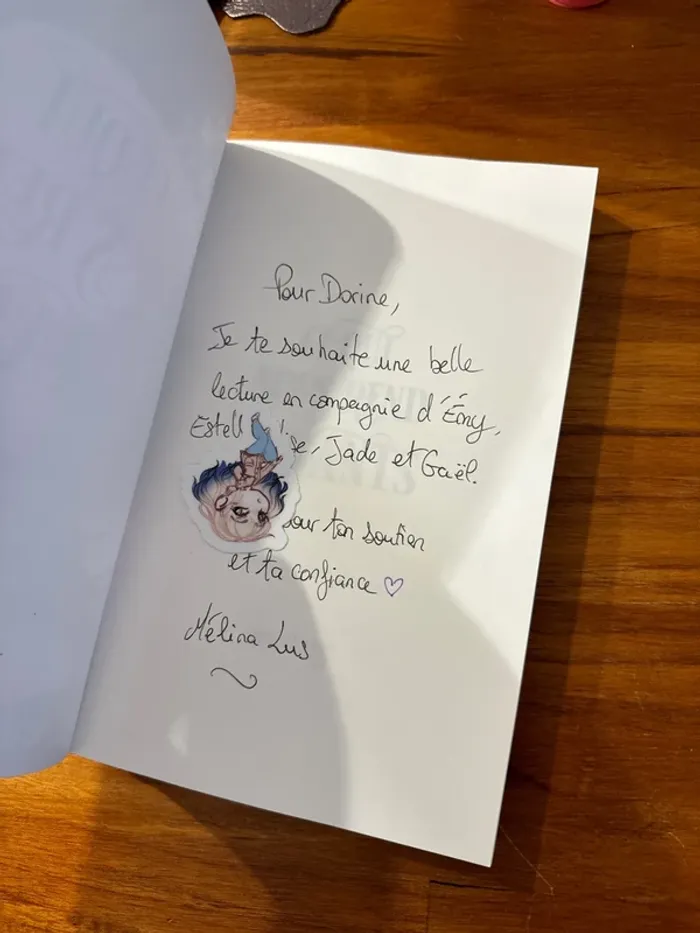 Pour Dorine,
Je te souhaite une belle
lecture en compagnie d'Émy,
Estell
Jade et Gaël.
pour ton soutien
et ta confiance ♡
Mélina Lus